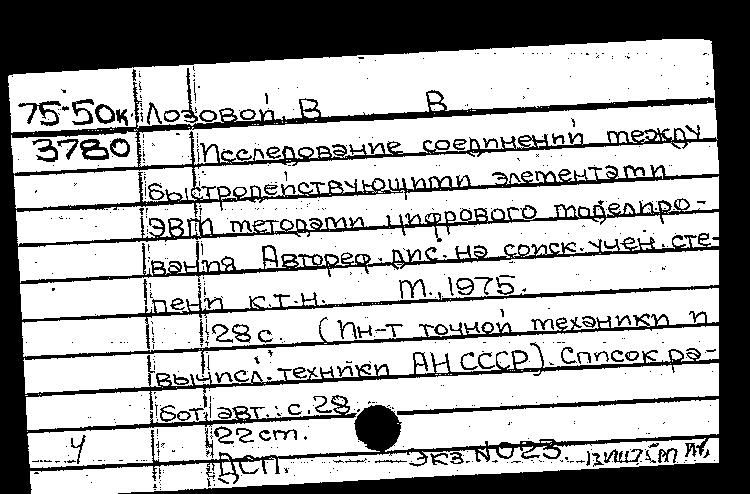 75-50к Лозовой, В В
3780 Исследование соединений между
быстродействующими элементами
ЭВМ методами цифрового моделиро-
вания Автореф. дис. на соиск. учен. сте-
пени к.т.н. М., 1975.
28 с. (Ин-т точной механики и
вычисл. техники АН СССР). Список ра-
бот авт.: с. 28
22 см.
Ч ДСП. Экз. N023.